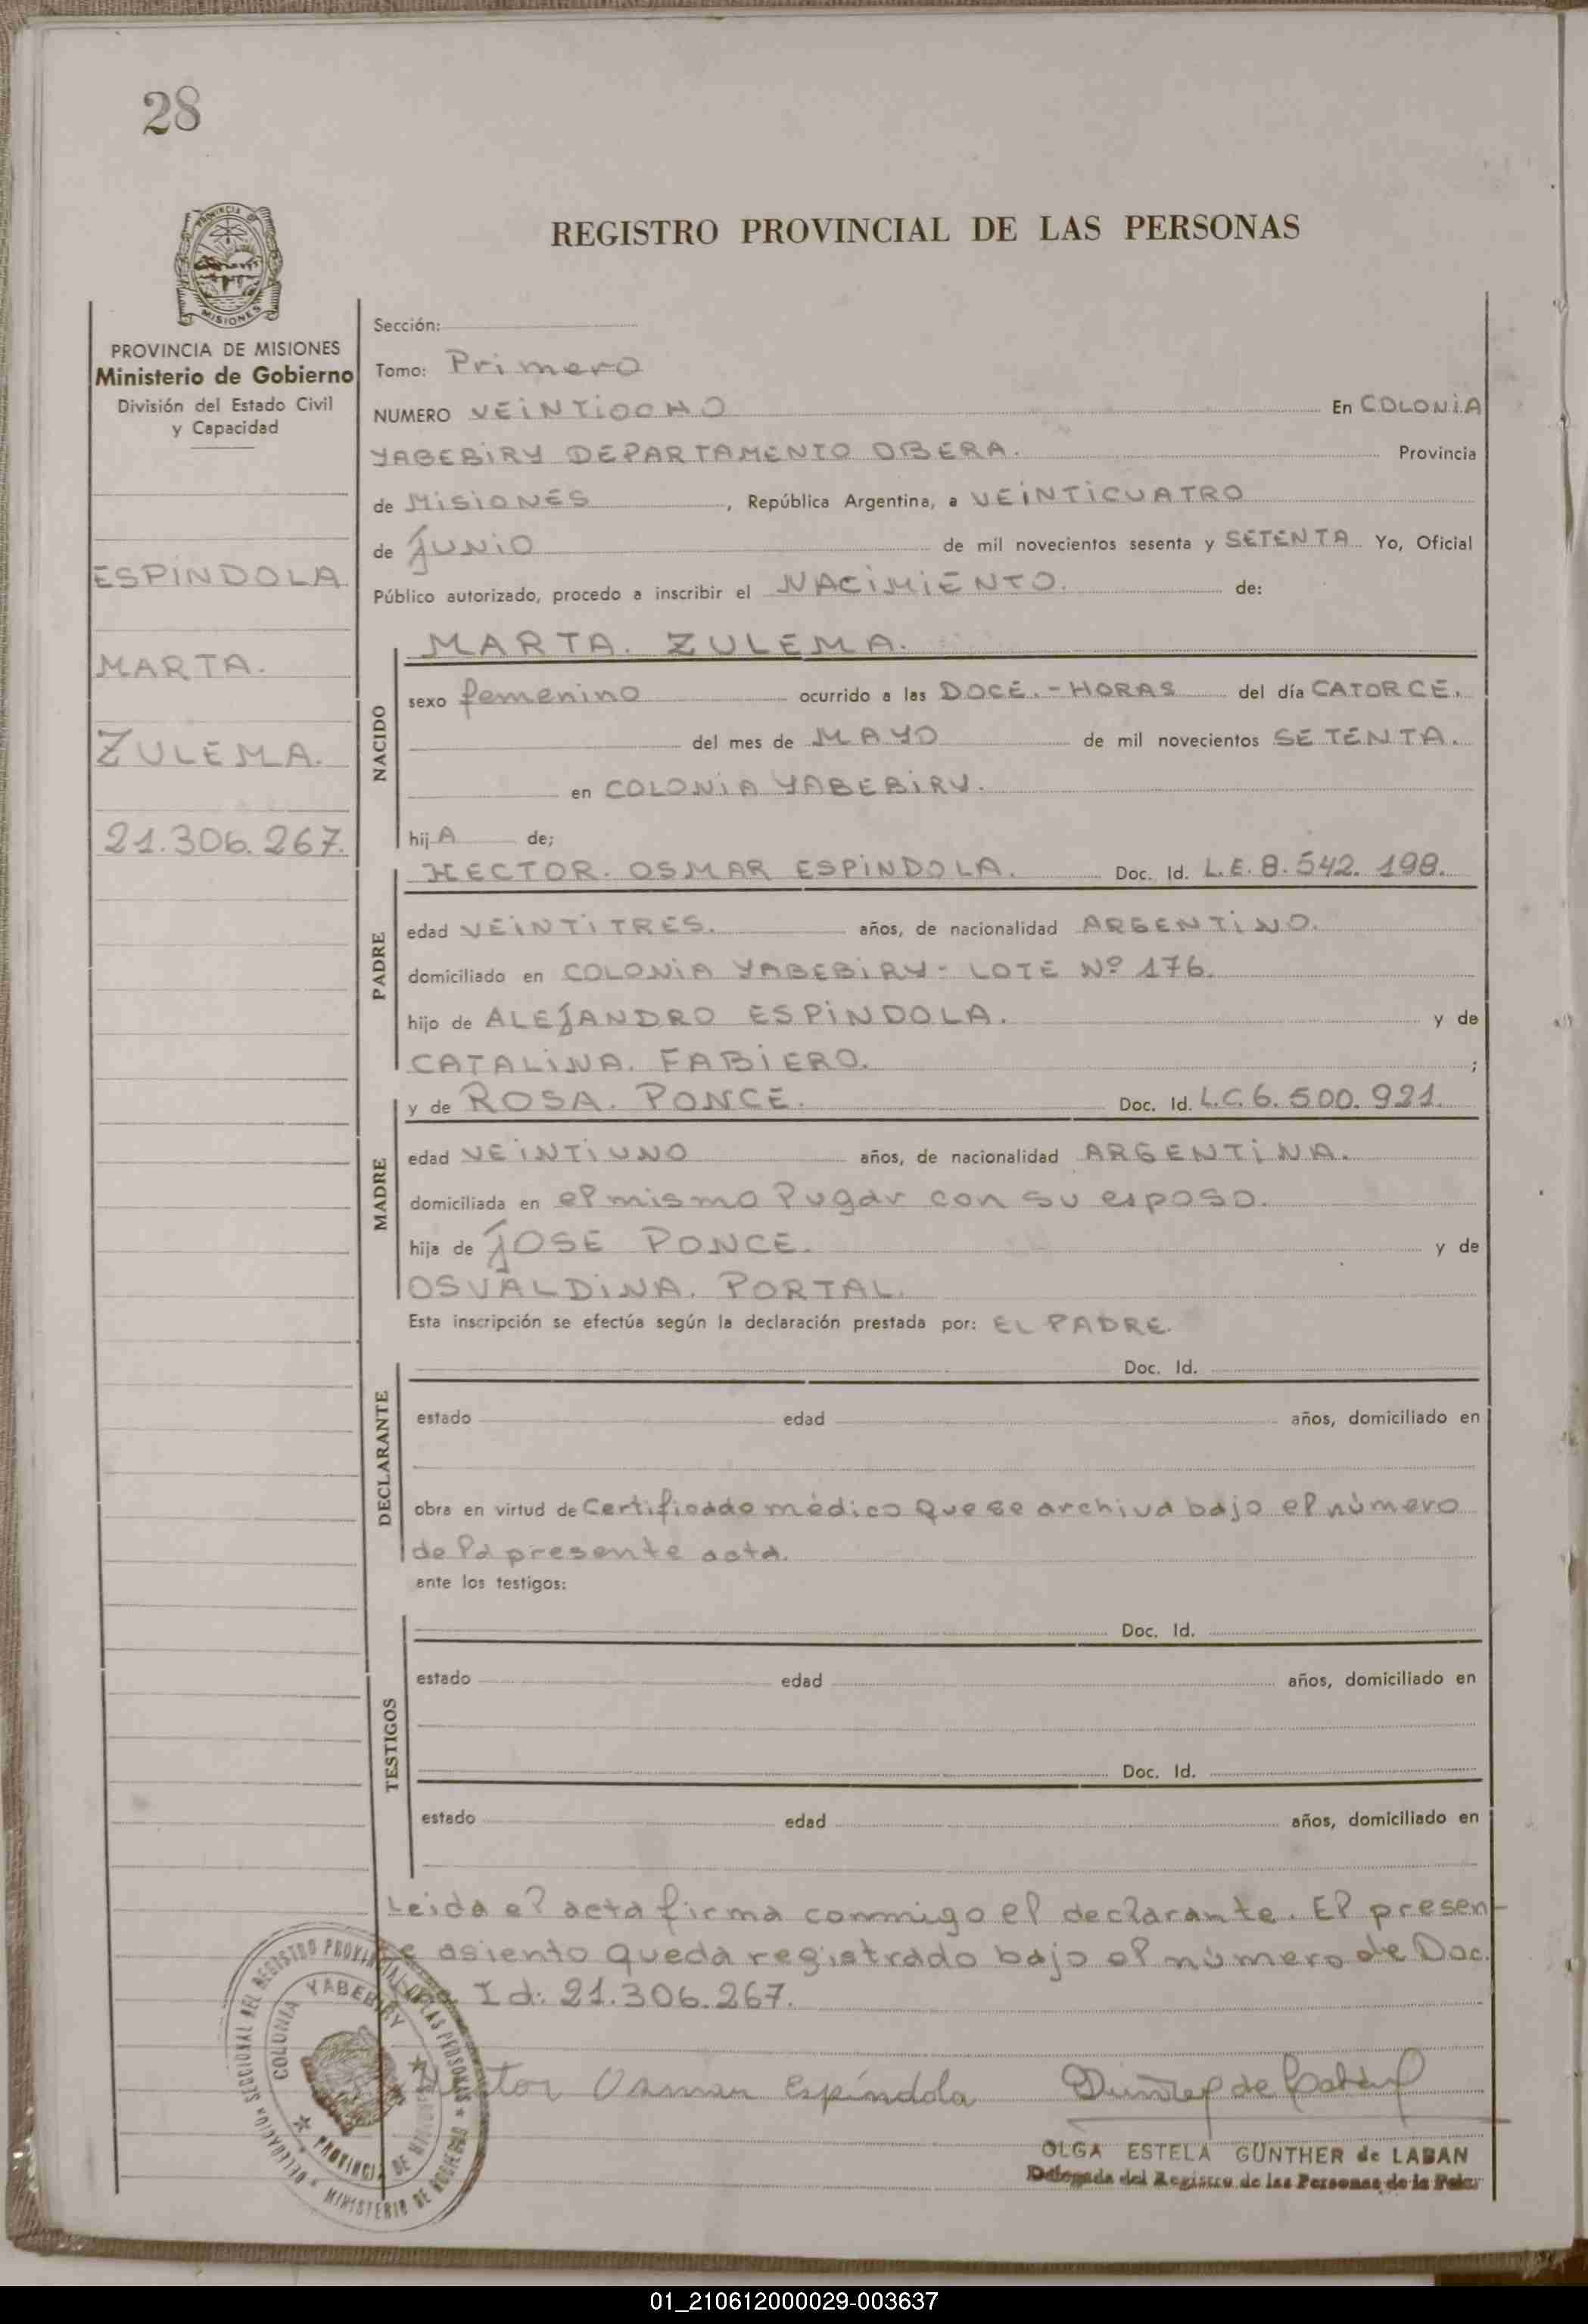 28
PROVINCIA
MISIONES
PROVINCIA DE MISIONES
Ministerio de Gobierno
División del Estado Civil
y Capacidad
ESPINDOLA
MARTA.
ZULEMA.
21.306.267.
REGISTRO PROVINCIAL DE LAS PERSONAS
Sección:
Tomo: Primero
NUMERO VEINTIOCHO En COLONIA
YABEBIRY DEPARTAMENTO OBERA. Provincia
de MISIONES, República Argentina, a VEINTICUATRO
de JUNIO de mil novecientos sesenta y SETENTA Yo, Oficial
Público autorizado, procedo a inscribir el NACIMIENTO. de:
NACIDO
MARTA. ZULEMA.
sexo femenino ocurrido a las DOCE.-HORAS del día CATORCE.
del mes de MAYO de mil novecientos SETENTA.
en COLONIA YABEBIRY.
hijA de;
PADRE
HECTOR. OSMAR ESPINDOLA. Doc. Id. L.E. 8.542.198.
edad VEINTITRES. años, de nacionalidad ARGENTINO.
domiciliado en COLONIA YABEBIRY- LOTE Nº 176.
hijo de ALEJANDRO ESPINDOLA. y de
CATALINA. FABIERO. ;
MADRE
y de ROSA. PONCE. Doc. Id. L.C. 6.500.921.
edad VEINTIUNO años, de nacionalidad ARGENTINA.
domiciliada en el mismo lugar con su esposo.
hija de JOSE PONCE. y de
OSVALDINA. PORTAL.
Esta inscripción se efectúa según la declaración prestada por: EL PADRE.
DECLARANTE
Doc. Id.
estado edad años, domiciliado en
obra en virtud de Certificado médico que se archiva bajo el número
de la presente acta.
ante los testigos:
TESTIGOS
Doc. Id.
estado edad años, domiciliado en
Doc. Id.
estado edad años, domiciliado en
Leida el acta firma conmigo el declarante. El presen-
te asiento queda registrado bajo el número de Doc.
Id: 21.306.267.
COLONIA YABEBIRY
PROVINCIA DE MISIONES
Osmar Espíndola
OLGA ESTELA GÜNTHER de LABAN
Delegada del Registro de las Personas de la
01_210612000029-003637